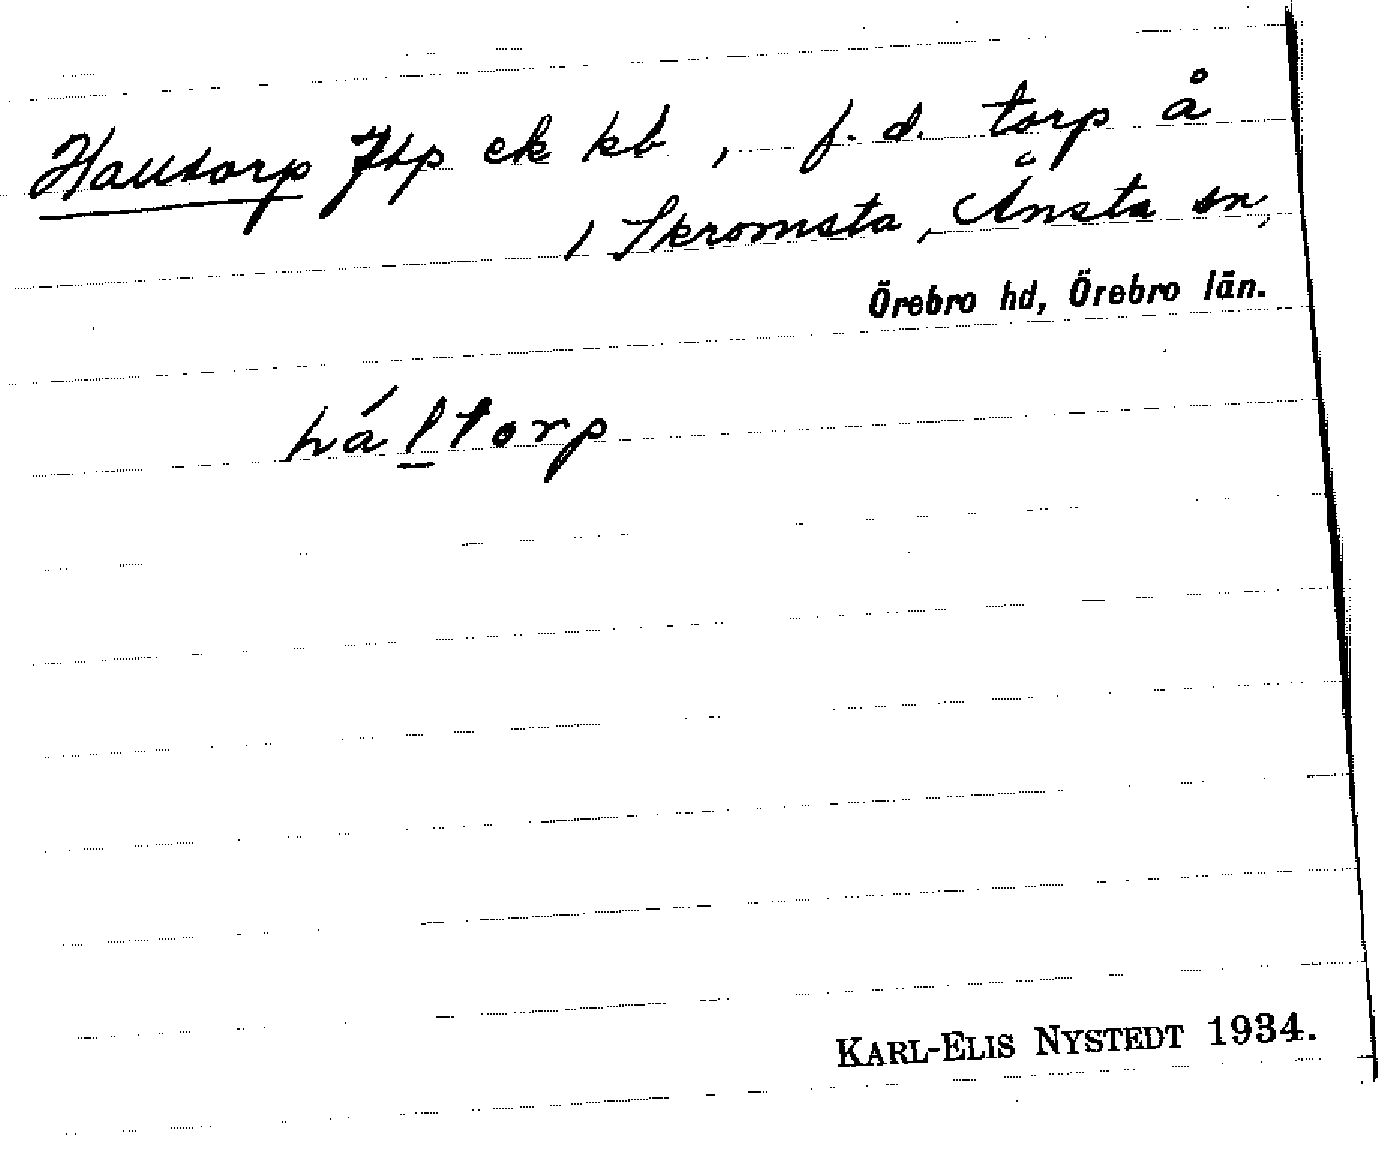 Haltorp Jtp ek kb, f. d. torp å
1 Skromsta, Ånsta sn,
Örebro hd, Örebro län.
háltorp
KARL-ELIS NYSTEDT 1934.